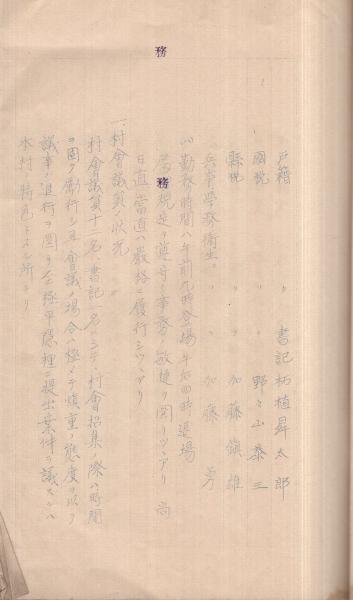 務
戸籍 〃 書記 柘植昇太郎
國税 〃 〃 野々山泰三
縣税 〃 〃 加藤嶺雄
兵事學務衛生 〃 〃 加藤
ハ勤務時間ハ午前九時登場午后四時退場
務規定ヲ遵守シ事務ノ敏捷ヲ図リツヽアリ 尚
日直當直ハ厳格ニ履行シツヽアリ
一、村會議員ノ状況
村會議員十二名、書記一名ニシテ、村會招集ノ際ハ時間
ヲ固ク勵行シ且會議ノ場合ハ極メテ慎重ノ態度ヲ以テ
議事ノ進行ヲ図リ至極平隠裡ニ提出案件ヲ議スルハ
本村ノ特色トスル所ナリ